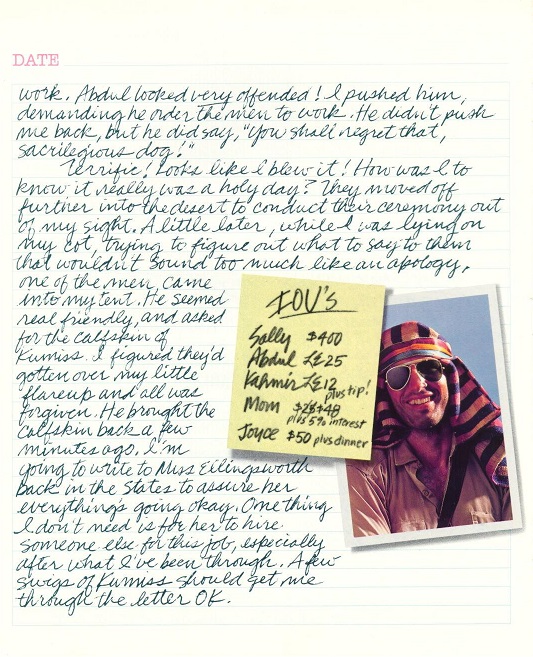 DATE
work. Abdul looked very offended! I pushed him,
demanding he order the men to work. He didn't push
me back, but he did say, "You shall regret that,
sacrilegious dog!"
Terrific! Looks like I blew it! How was I to
know it really was a holy day? They moved off
further into the desert to conduct their ceremony out
of my sight. A little later, while I was lying on
my cot, trying to figure out what to say to them
that wouldn't sound too much like an apology,
one of the men came
into my tent. He seemed
real friendly, and asked
for the calfskin of
Kumiss. I figured they'd
gotten over my little
flareup and all was
forgiven. He brought the
calfskin back a few
minutes ago. I'm
going to write to Miss Ellingsworth
back in the States to assure her
everything's going okay. One thing
I don't need is for her to hire
someone else for this job, especially
after what I've been through. A few
swigs of Kumiss should get me
through the letter OK.
IOU's
Sally $400
Abdul L£25
Kahmir L£12
plus tip!
Mom $28 $48
plus 5% interest
Joyce $50 plus dinner